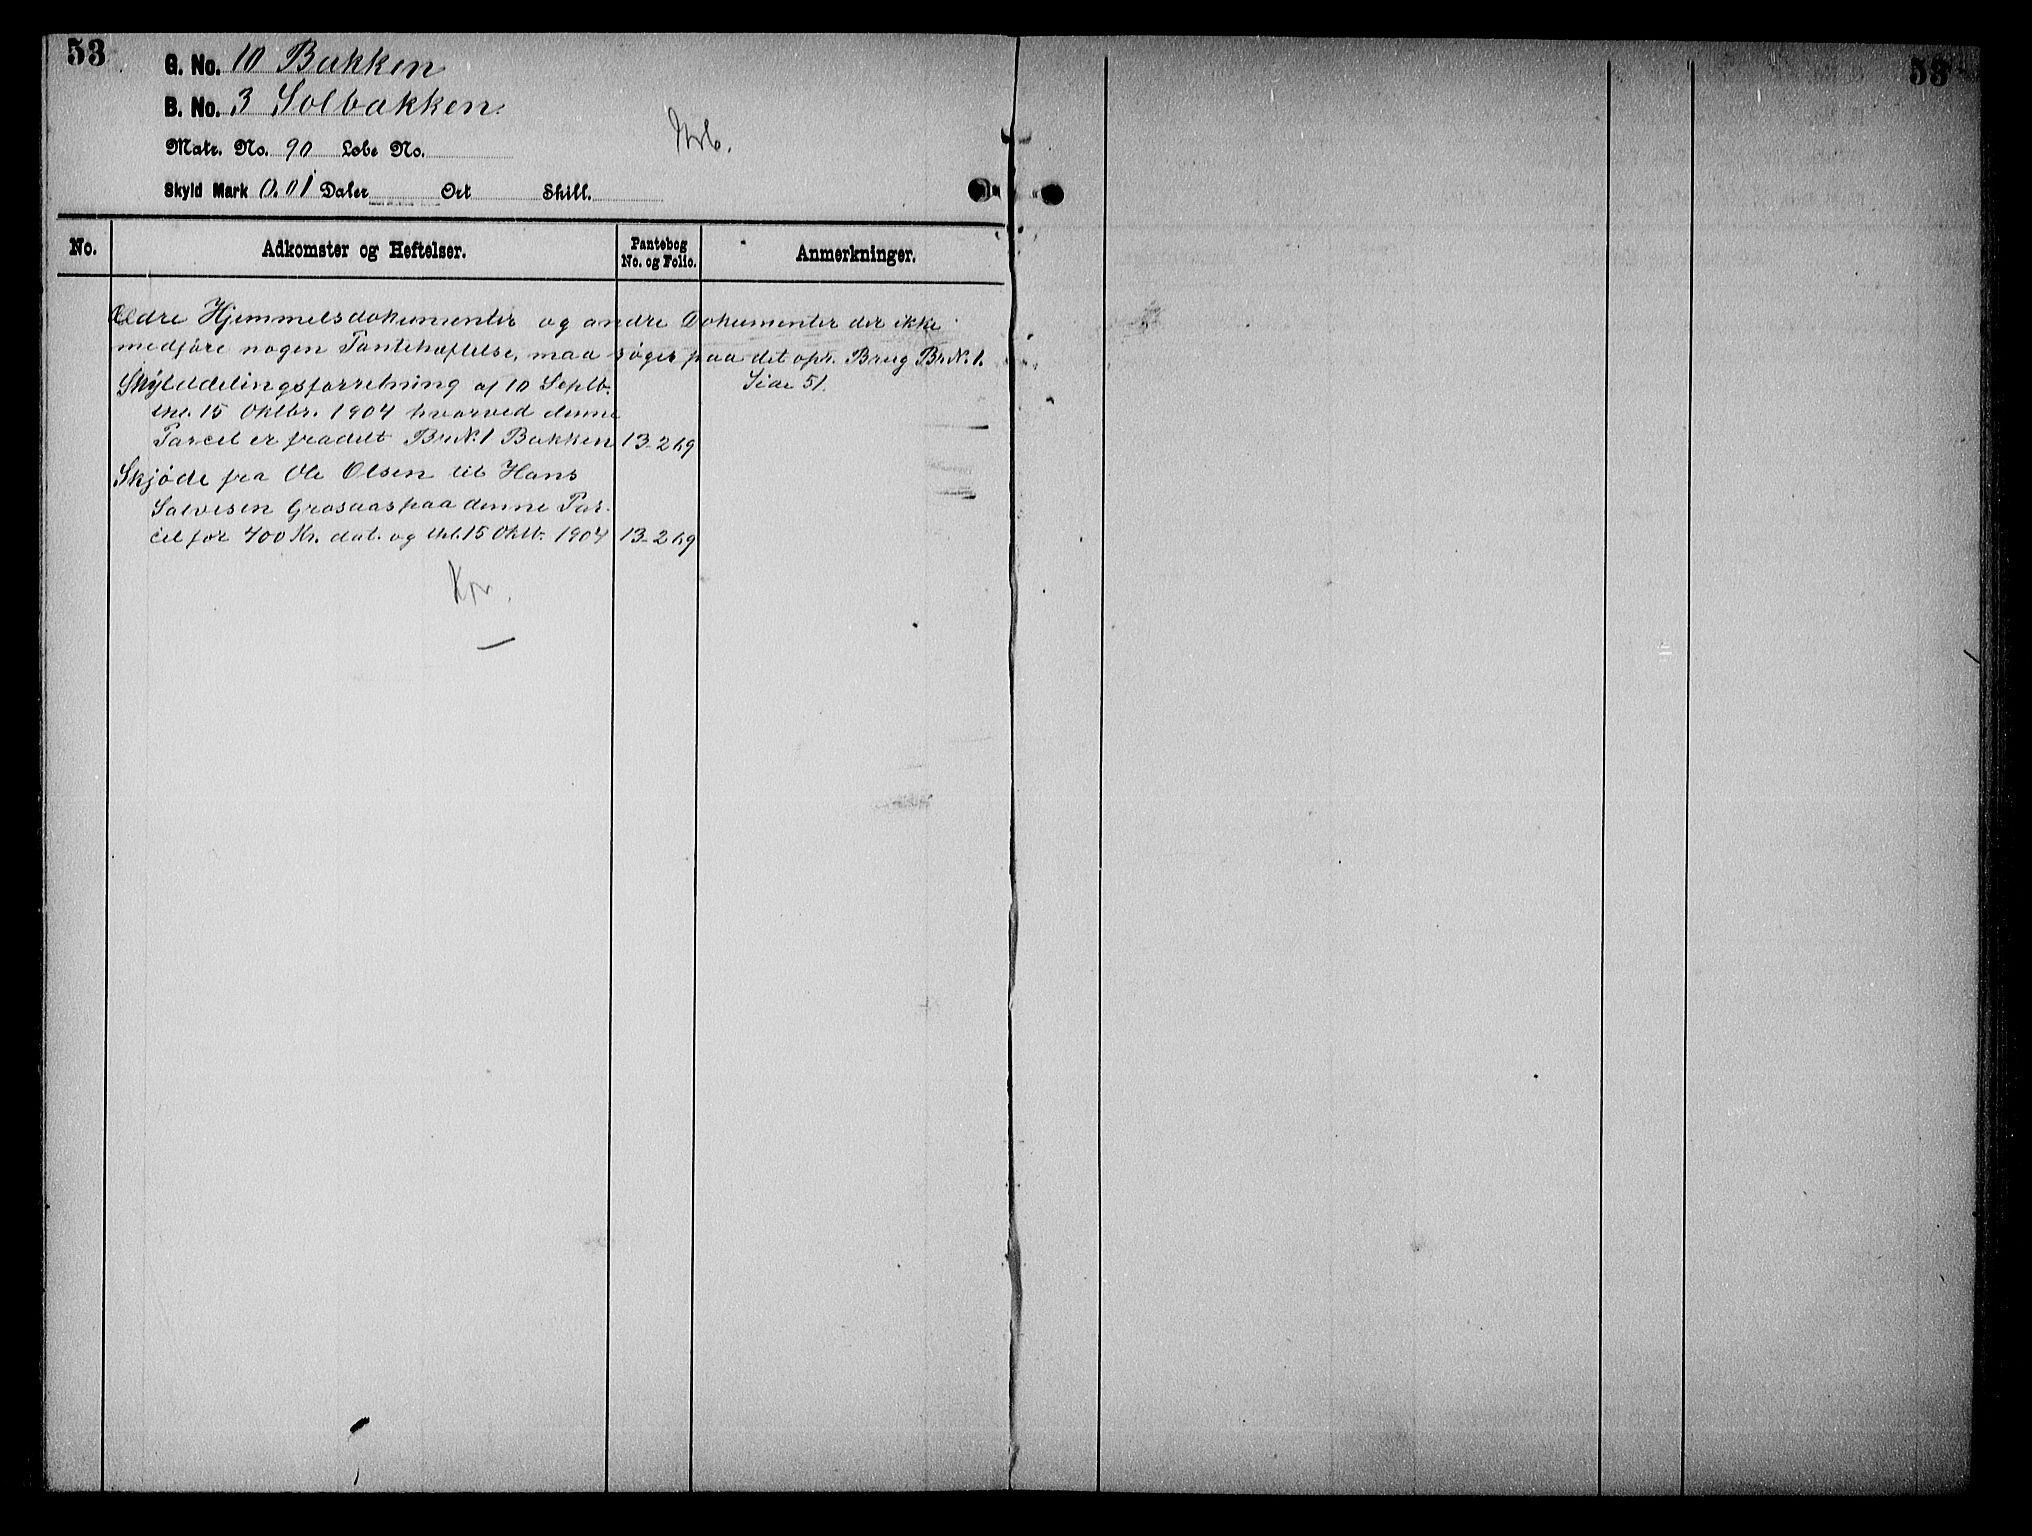 53
53
G. No. 10 Bakken
B. No. 3 Solbakken.
Matr. No. 90 Løbe No.
Skyld Mark 0.01 Daler Ort Skill.
No.
Adkomster og Heftelser.
Pantebog No. og Folio.
Anmerkninger.
Ældre Hjemmelsdokumenter og andre Dokumenter der ikke
medføre nogen Pantehæftelse, maa søges paa det opr. Brug Br.N. 1.
Side 51.
Skylddelingsforretning af 10 Septb.
thl. 15 Oktbr. 1904 hvorved denne
Parcel er fradelt Br.N. 1 Bakken 13-269
Skjøde fra Ole Olsen til Hans
Salvesen Grosaas paa denne Par-
cel for 400 Kr. dat. og thl. 15 Oktb. 1904 13-269